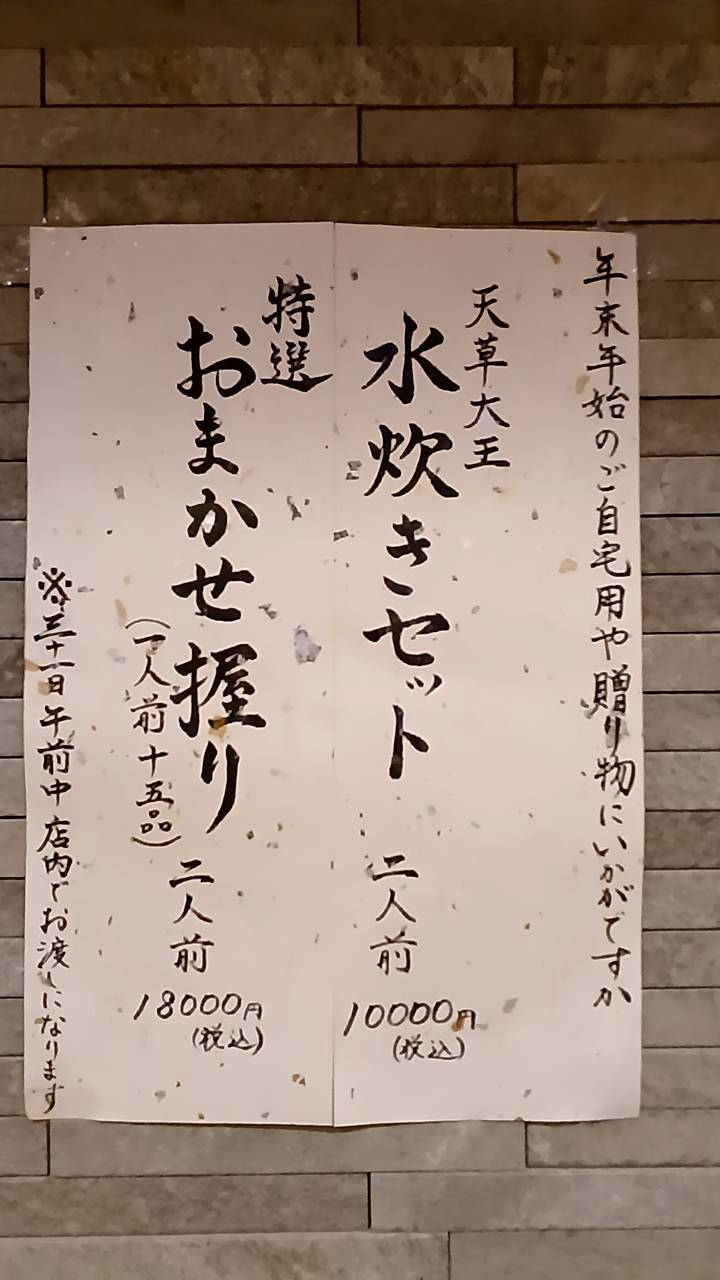 年末年始のご自宅用や贈り物にいかがですか
天草大王
水炊きセット 二人前
10000円
(税込)
特選
おまかせ握り 二人前
(一人前十五品)
18000円
(税込)
※三十一日午前中店内でお渡しになります